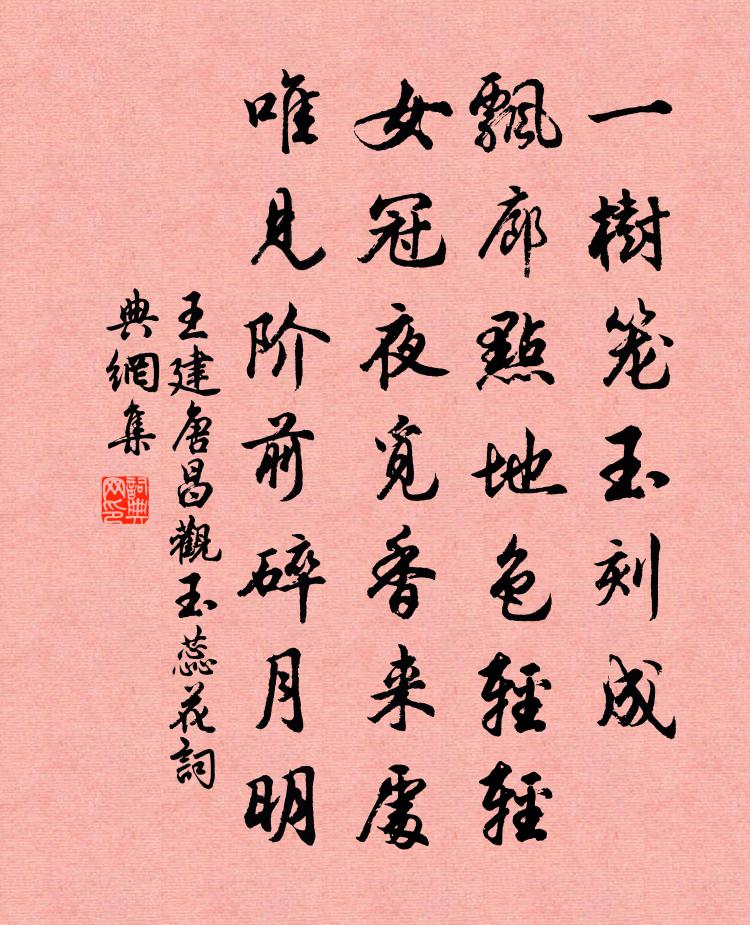 一樹笼玉刻成
飄廊點地色輕輕
女冠夜覓香来處
唯見阶前碎月明
王建唐昌觀玉蕊花詞
典網集
詞典
网印